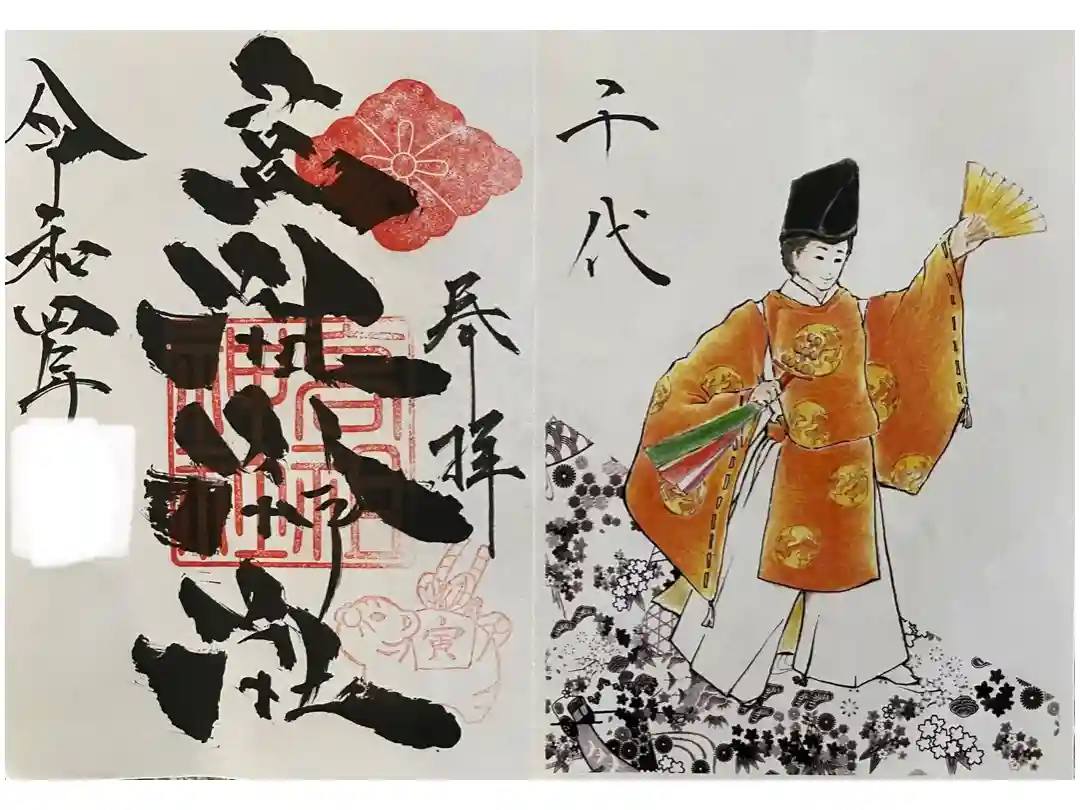 千代
奉拝
高祖神社
高祖神社
寅
令和四年